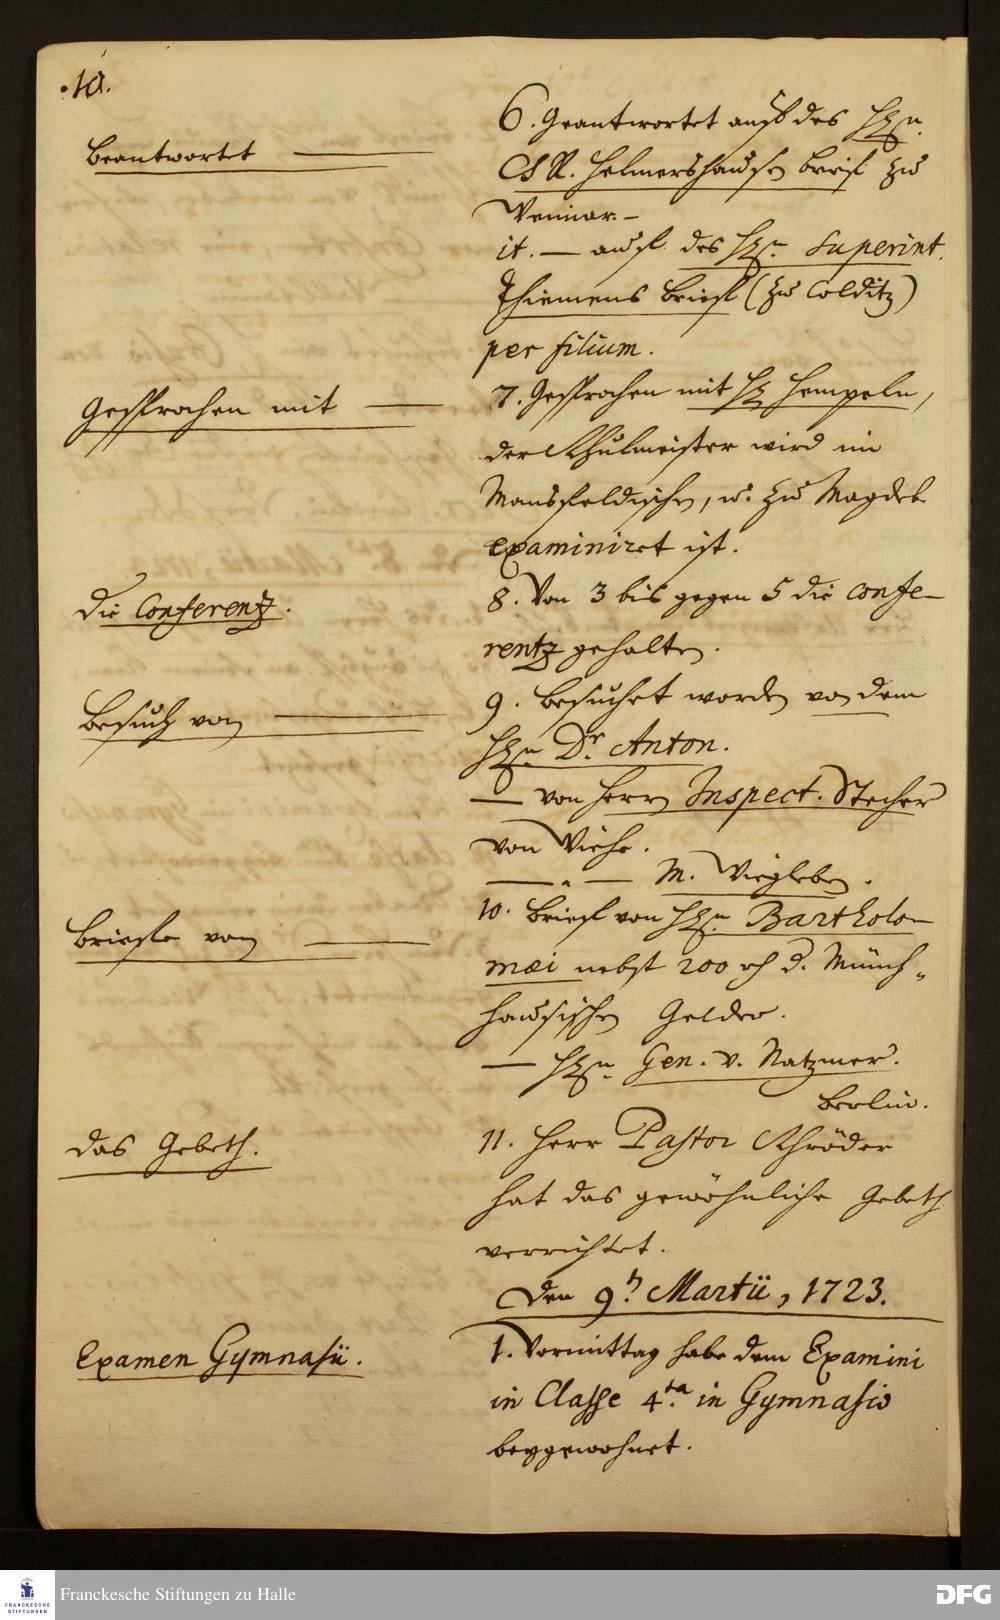 10.
Beantwortet
6. Geantwortet auff des HEn.
CR. Helmershausen brief zu
Weimar. –
it. — auff des HEn. Superint.
Thiemens brieff (zu Colditz)
per filium.
Gesprochen mit
7. Gesprochen mit HE Hempeln,
der Schulmeister wird im
Mansfeldischen, u. zu Magdeb.
examiniret ist.
Die Conferentz.
8. Von 3 bis gegen 5 die confe-
rentz gehalten.
Besuch von
9. besuchet worden von dem
HEn. Dr. Anton.
— von Herrn Inspect. Stecher
von Wiehe.
— " — M. Wiegleben.
Brieffe von
10. Brieff von HEn. Bartholo-
mæi nebst 200 rh d. Münch-
hausischen Gelder.
— HEn. Gen. v. Natzmer.
Berlin.
Das Gebeth.
11. Herr Pastor Schröder
hat das gewöhnliche Gebeth
verrichtet.
Den 9n. Martii, 1723.
Examen Gymnasii.
1. Vormittag habe dem Examini
in Classe 4ta. in Gymnasio
beygewohnet.
Franckesche Stiftungen zu Halle
FRANCKESCHE
STIFTUNGEN
DFG